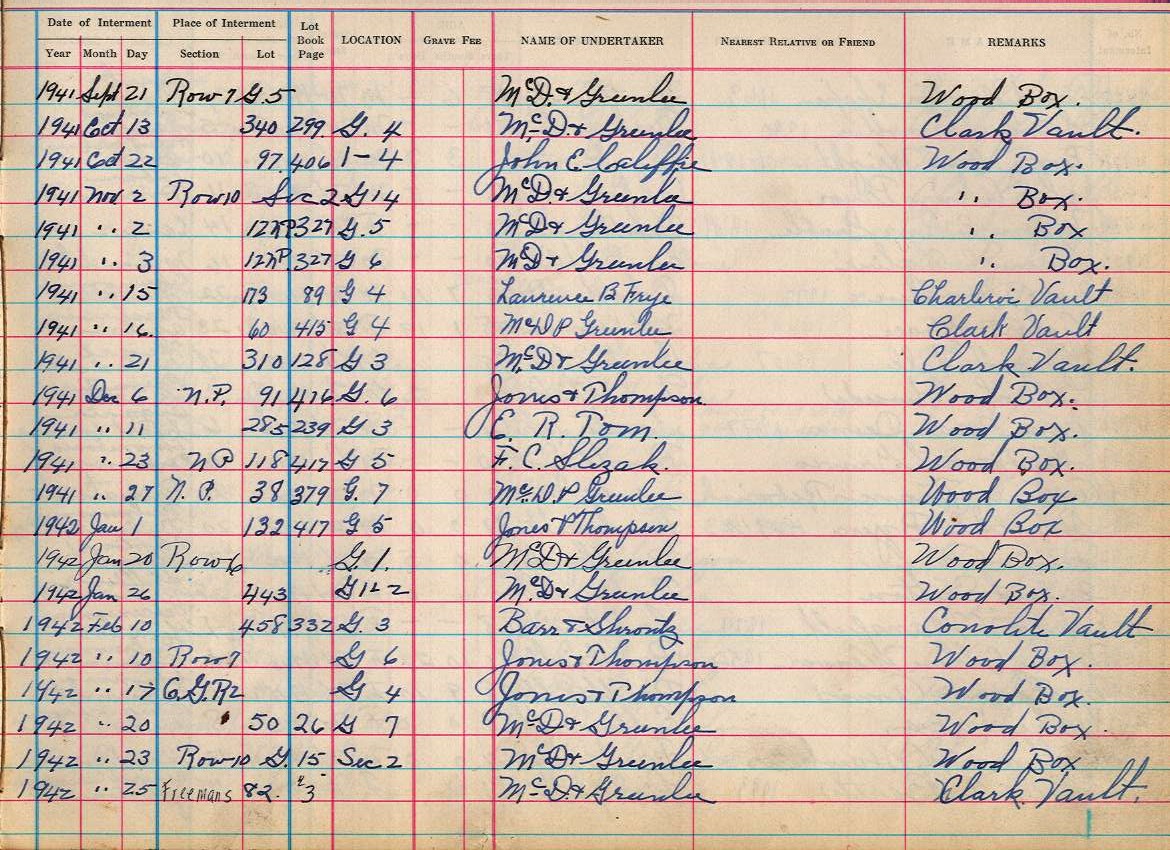 Date of Interment Place of Interment Lot Book Page LOCATION GRAVE FEE NAME OF UNDERTAKER NEAREST RELATIVE OR FRIEND REMARKS
Year Month Day Section Lot
1941 Sept 21 Row 7 G. 5 McD. & Greenlee Wood Box.
1941 Oct 13 340 299 G. 4 McD & Greenlee Clark Vault.
1941 Oct 22 97 406 1-4 John E. Wood Box.
1941 Nov 2 Row 10 Sec 2 G 14 McD & Greenlee " Box.
1941 " 2 327 G. 5 McD & Greenlee " Box
1941 " 3 327 G 6 McD & Greenlee " Box.
1941 " 15 173 89 G 4 Laurence B Frye Charleroi Vault
1941 " 16. 60 415 G 4 McD P Greenlee Clark Vault
1941 " 21 310 128 G 3 McD & Greenlee Clark Vault.
1941 Dec 6 N.P. 91 416 G. 6 Jones & Thompson Wood Box.
1941 " 11 285 239 G 3 E. R. Tom. Wood Box.
1941 " 23 N P 118 417 G 5 F. C. Slezak. Wood Box.
1941 " 27 N. P. 38 379 G. 7 McD. P Greenlee Wood Box
1942 Jan 1 132 417 G 5 Jones & Thompson Wood Box
1942 Jan 20 Row 6 G. 1. McD & Greenlee Wood Box.
1942 Jan 26 443 G 1 & 2 McD & Greenlee Wood Box.
1942 Feb 10 458 332 G. 3 Barr & Shrontz Conolite Vault
1942 " 10 Row 7 G 6 Jones & Thompson Wood Box.
1942 " 17 G 4 Jones & Thompson Wood Box.
1942 " 20 50 26 G 7 McD & Greenlee Wood Box.
1942 " 23 Row 10 G. 15 Sec 2 McD & Greenlee Wood Box
1942 " 25 Freemans 82. 3 McD. & Greenlee Clark Vault.